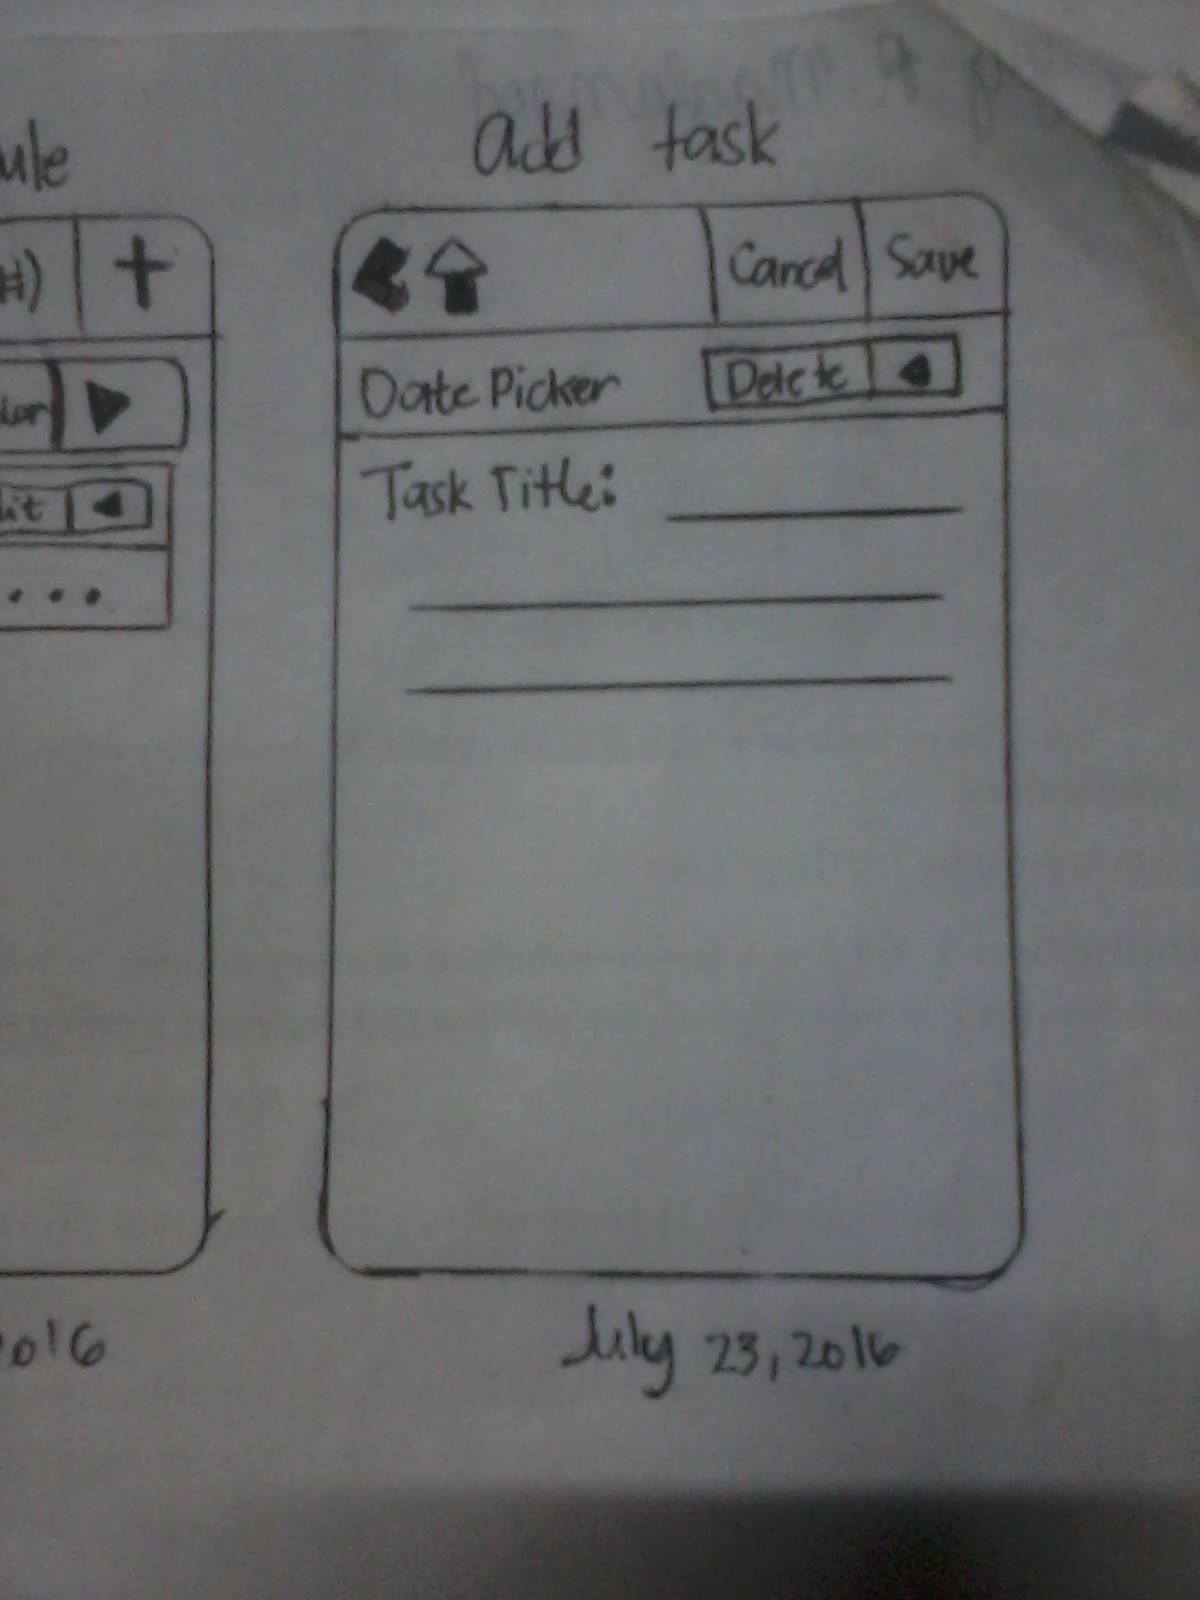 add task
Cancel Save
Date Picker Delete
Task Title:
July 23, 2016